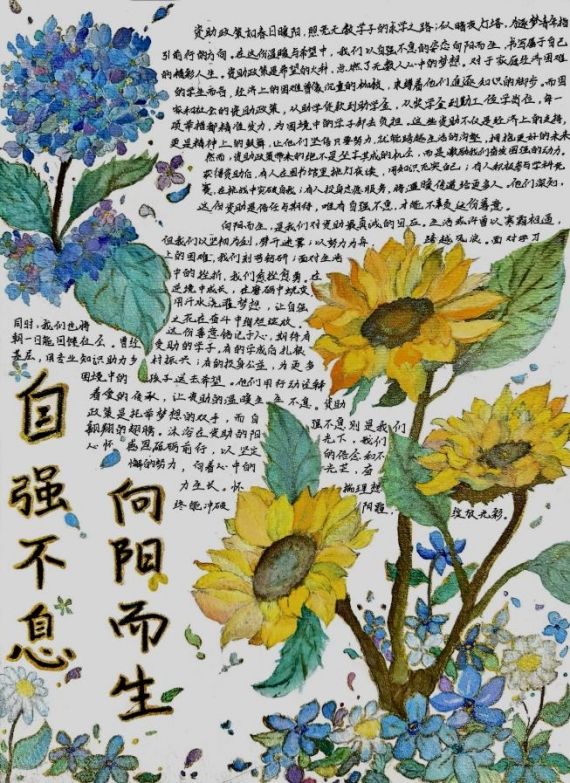 资助政策如春日暖阳，照亮无数学子的求学之路；似暗夜灯塔，为逐梦青年指
引前行的方向。在这份温暖与希望中，我们以自强不息的姿态向阳而生，书写属于自己
的精彩人生。资助政策是希望的火种，点燃了无数人心中的梦想。对于家庭经济困难
的学生而言，经济上的困难曾像沉重的枷锁，束缚着他们追逐知识的脚步。而国
家和社会的资助政策，从助学贷款到助学金，从奖学金到勤工俭学岗位，每一
项举措都精准发力，为困境中的学子卸去负担。这些资助不仅是经济上的支持，
更是精神上的鼓舞，让他们坚信只要努力，就能跨越生活的沟壑，拥抱更好的未来
然而，资助政策带来的绝不是坐享其成的机会，而是激励我们奋发图强的动力。
获得资助后，有人在图书馆里挑灯夜读，用知识充实自己；有人积极参与学科竞
赛，在挑战中突破自我；有人投身志愿服务，将温暖传递给更多人。他们深知，
这份资助是信任与期待，唯有自强不息，才能不辜负这份善意。
向阳而生，是我们对资助最真诚的回应。生活或许曾以寒霜相逼，
但我们以坚韧为剑，劈开迷雾；以努力为舟，跨越风浪。面对学习
上的困难，我们刻苦钻研；面对生活
中的挫折，我们愈挫愈勇，在
逆境中成长，在磨砺中蜕变
用汗水浇灌梦想，让自强
之花在奋斗中绚烂绽放。
同时，我们也将这份善意铭记于心，期待有
朝一日能回馈社会。曾经受助的学子，有的学成后扎根
基层，用专业知识助力乡村振兴；有的投身公益，为更多
困境中的孩子送去希望。他们用行动诠释
着爱的传承，让资助的温暖生生不息。资助
政策是托举梦想的双手，而自强不息则是我们
翱翔的翅膀。沐浴在资助的阳光下，我们
心怀感恩砥砺前行，以坚定的信念和不
懈的努力，向着心中的光芒，奋
力生长。怀揣理想
终能冲破阴霾，绽放光彩。
自强不息
向阳而生